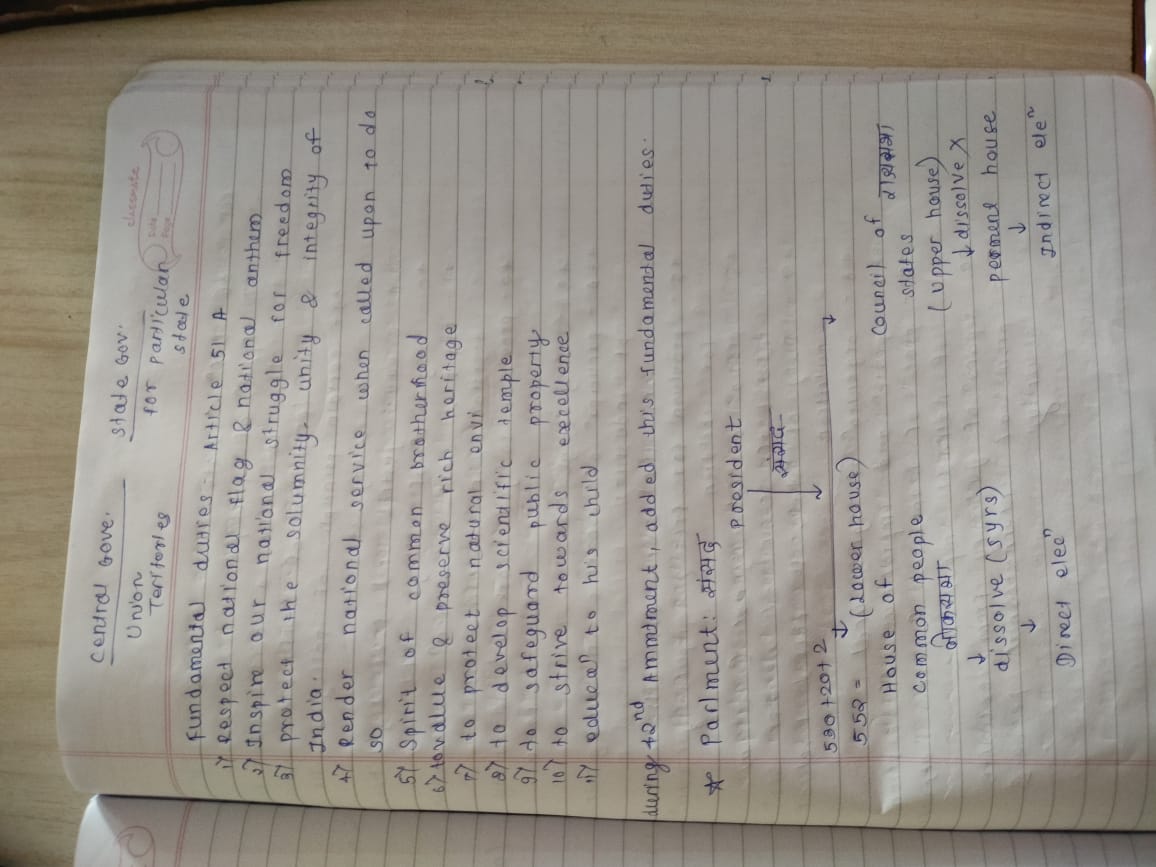 classmate
Date
Page
Central Gove. State Gov.
Union for particular
Teritories state
Fundamental dutres - Article 51 A
1) Respect national flag & national anthem
2) Inspire our national struggle for freedom
3) protect the solumnity unity & integrity of
India.
4) Render national service when called upon to do
so
5) Spirit of common brotherhood
6) to value & preserve rich heritage
7) to protect natural envi
8) to develop scientific temple
9) to safeguard public property
10) to strive towards excellence
11) educaⁿ to his child
during 42nd Ammdment, added this fundamental duties.
* Parlment: संसद
President
संसद
530+20+2
552 - (Lower house) Council of राज्यसभा
House of states
common people (upper house)
लोकसभा ↓ dissolve X
↓ perment house
dissolve (5yrs) ↓
↓ Indirect eleⁿ
Direct eleeⁿ